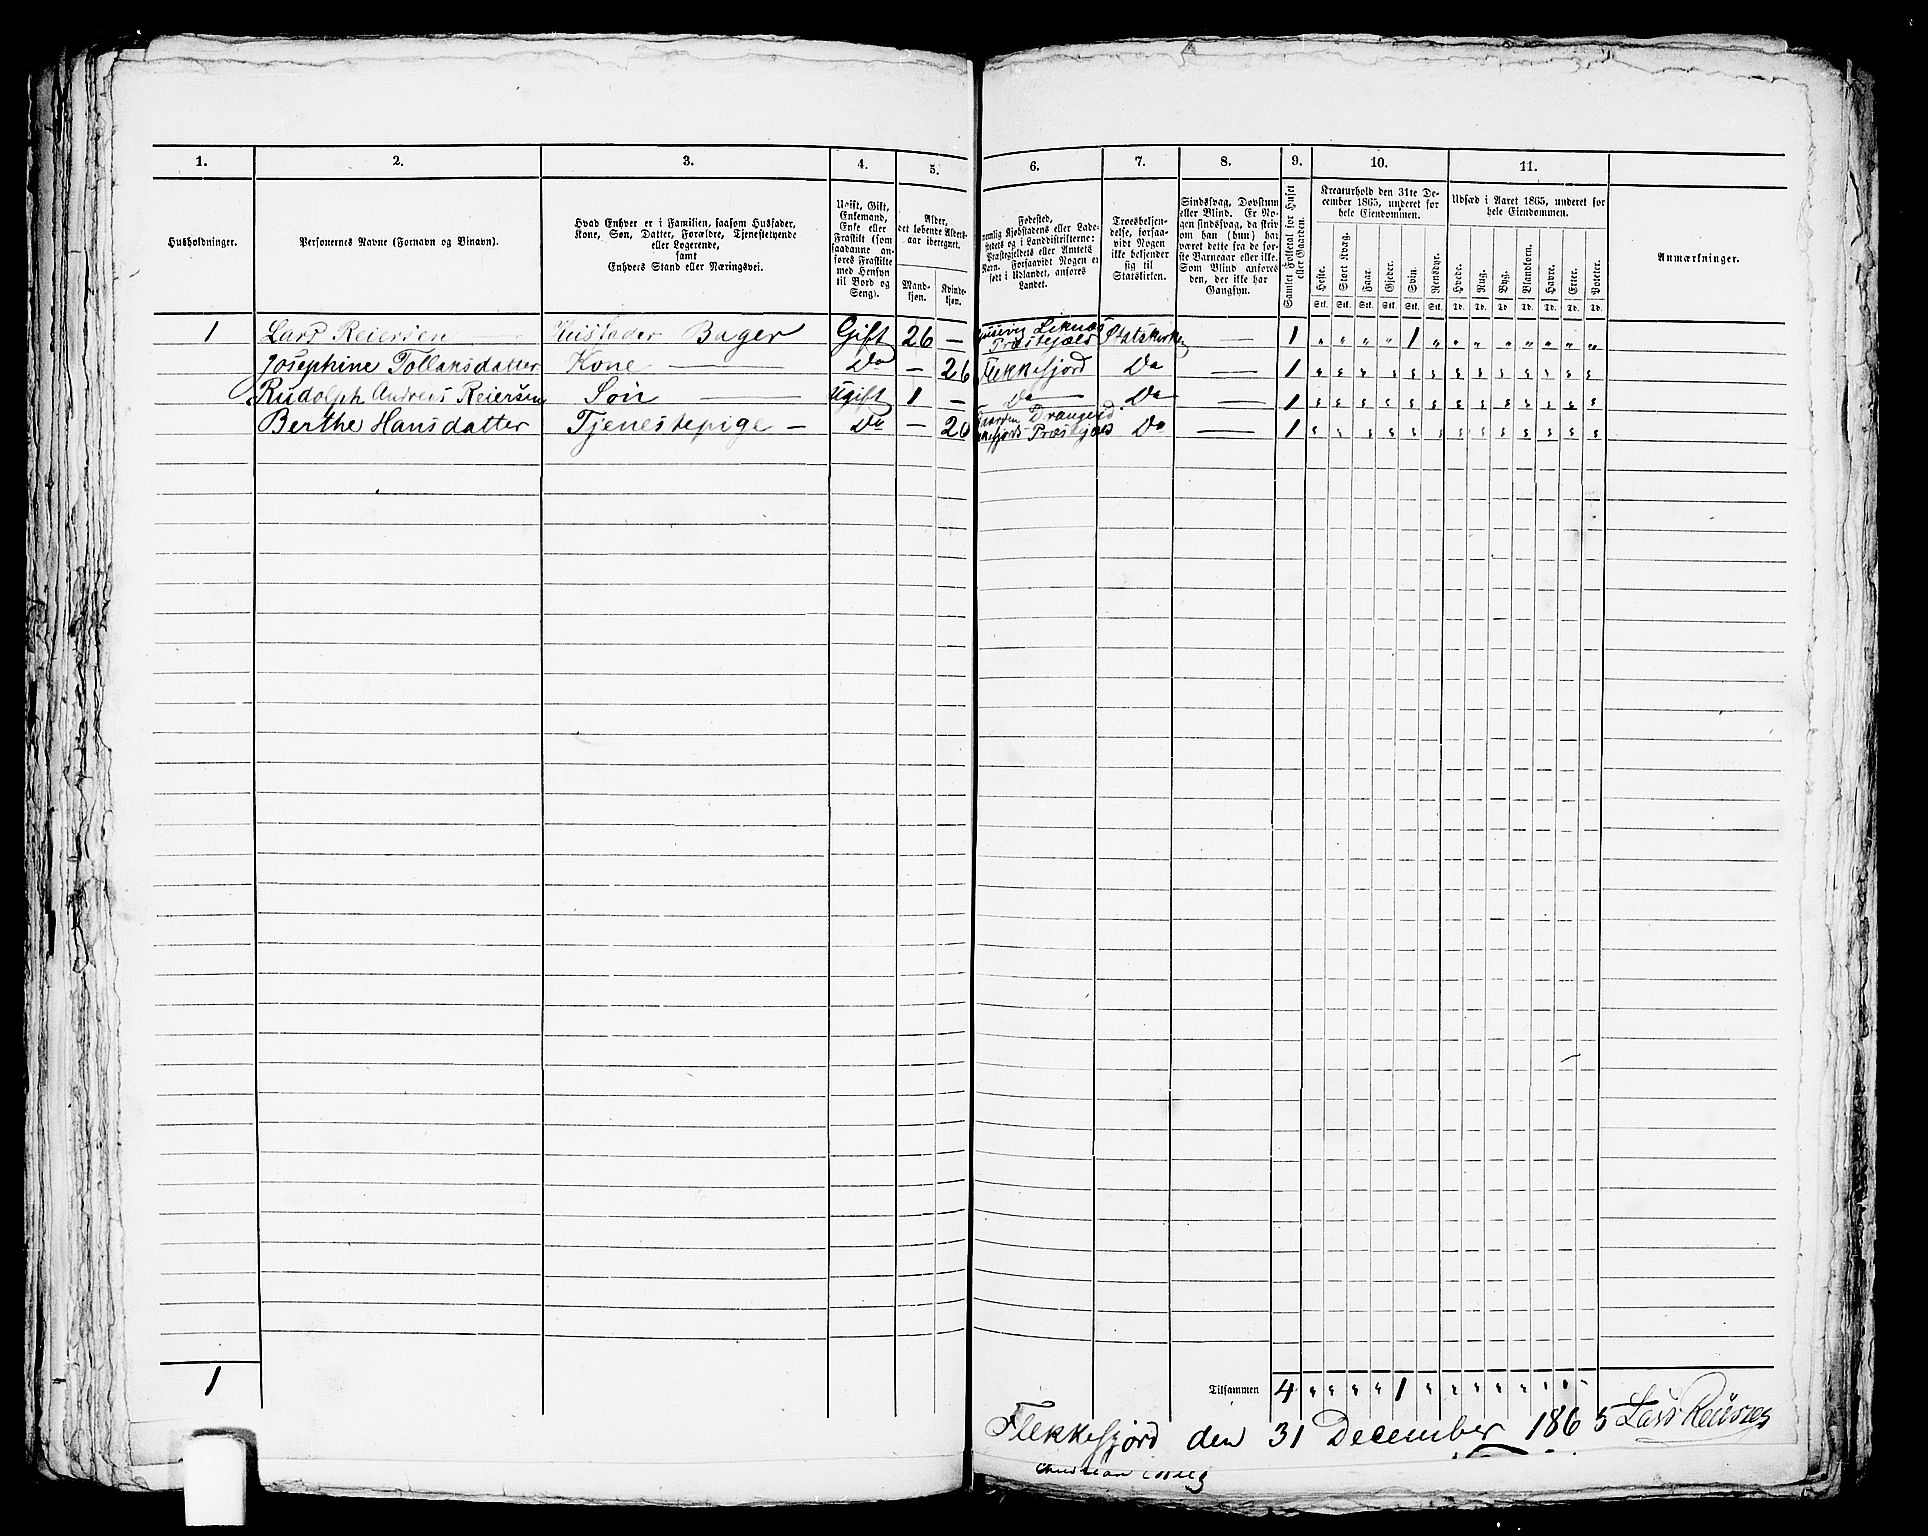 1. 2. 3. 4. 5. 6. 7. 8. 9. 10. 11.
Husholdninger.
Personernes Navne (Fornavn og Binavn).
Hvad Enhver er i Familien, saasom Husfader,
Kone, Søn, Datter, Forældre, Tjenestetyende
eller Logerende,
samt
Enhvers Stand eller Næringsvei.
Ugift, Gift,
Enkemand,
Enke eller
Fraskilt (som
saadanne an-
føres Fraskilte
med Hensyn
til Bord og
Seng).
Alder,
det løbende Alders-
aar iberegnet.
Mand-
kjøn.
Kvinde-
kjøn.
Fødested,
nemlig Kjøbstadens eller Lade-
stedets og i Landdistrikterne:
Præstegjeldets eller Annexets
Navn. Forsaavidt Nogen er
født i Udlandet, anføres
Landet.
Troesbekjen-
delse, forsaa-
vidt Nogen
ikke bekjender
sig til
Statskirken.
Sindssvag, Døvstum
eller Blind. Er No-
gen sindssvag, da skriv
om han (hun) har
været dette fra de før-
ste Barneaar eller ikke.
Som Blind anføres
den, der ikke har
Gangsyn.
Samlet Folketal for Huset
eller Gaarden.
Kreaturhold den 31te De-
cember 1865, underet for
hele Eiendommen.
Heste. Stort Kvæg. Faar. Gjeder. Svin. Rensdyr.
Stk. Stk. Stk. Stk. Stk. Stk.
Udsæd i Aaret 1865, underet for
hele Eiendommen.
Hvede. Rug. Byg. Blandkorn. Havre. Erter. Poteter.
Td. Td. Td. Td. Td. Td. Td.
Anmærkninger.
1 Lars Reiersen Huusfader Bager Gift 26 — Liknæs Præstejæld Statskirken — 1 " " " " 1 " " " " " " " "
Josephine Tollaksdatter Kone — Do — 26 Flekkefjord Do — 1 " " " " " " " " " " " " "
Rudolph Andreas Reiersen Søn — Ugift 1 — Do Do — 1 " " " " " " " " " " " " "
Berthe Hansdatter Tjenestepige — Do — 26 Gaarden Drangeid Præstejæld Do — 1 " " " " " " " " " " " " "
1 Tilsammen 4 " " " " 1 " " " " " " " "
Flekkefjord den 31 December 1865 Lars Reiersen